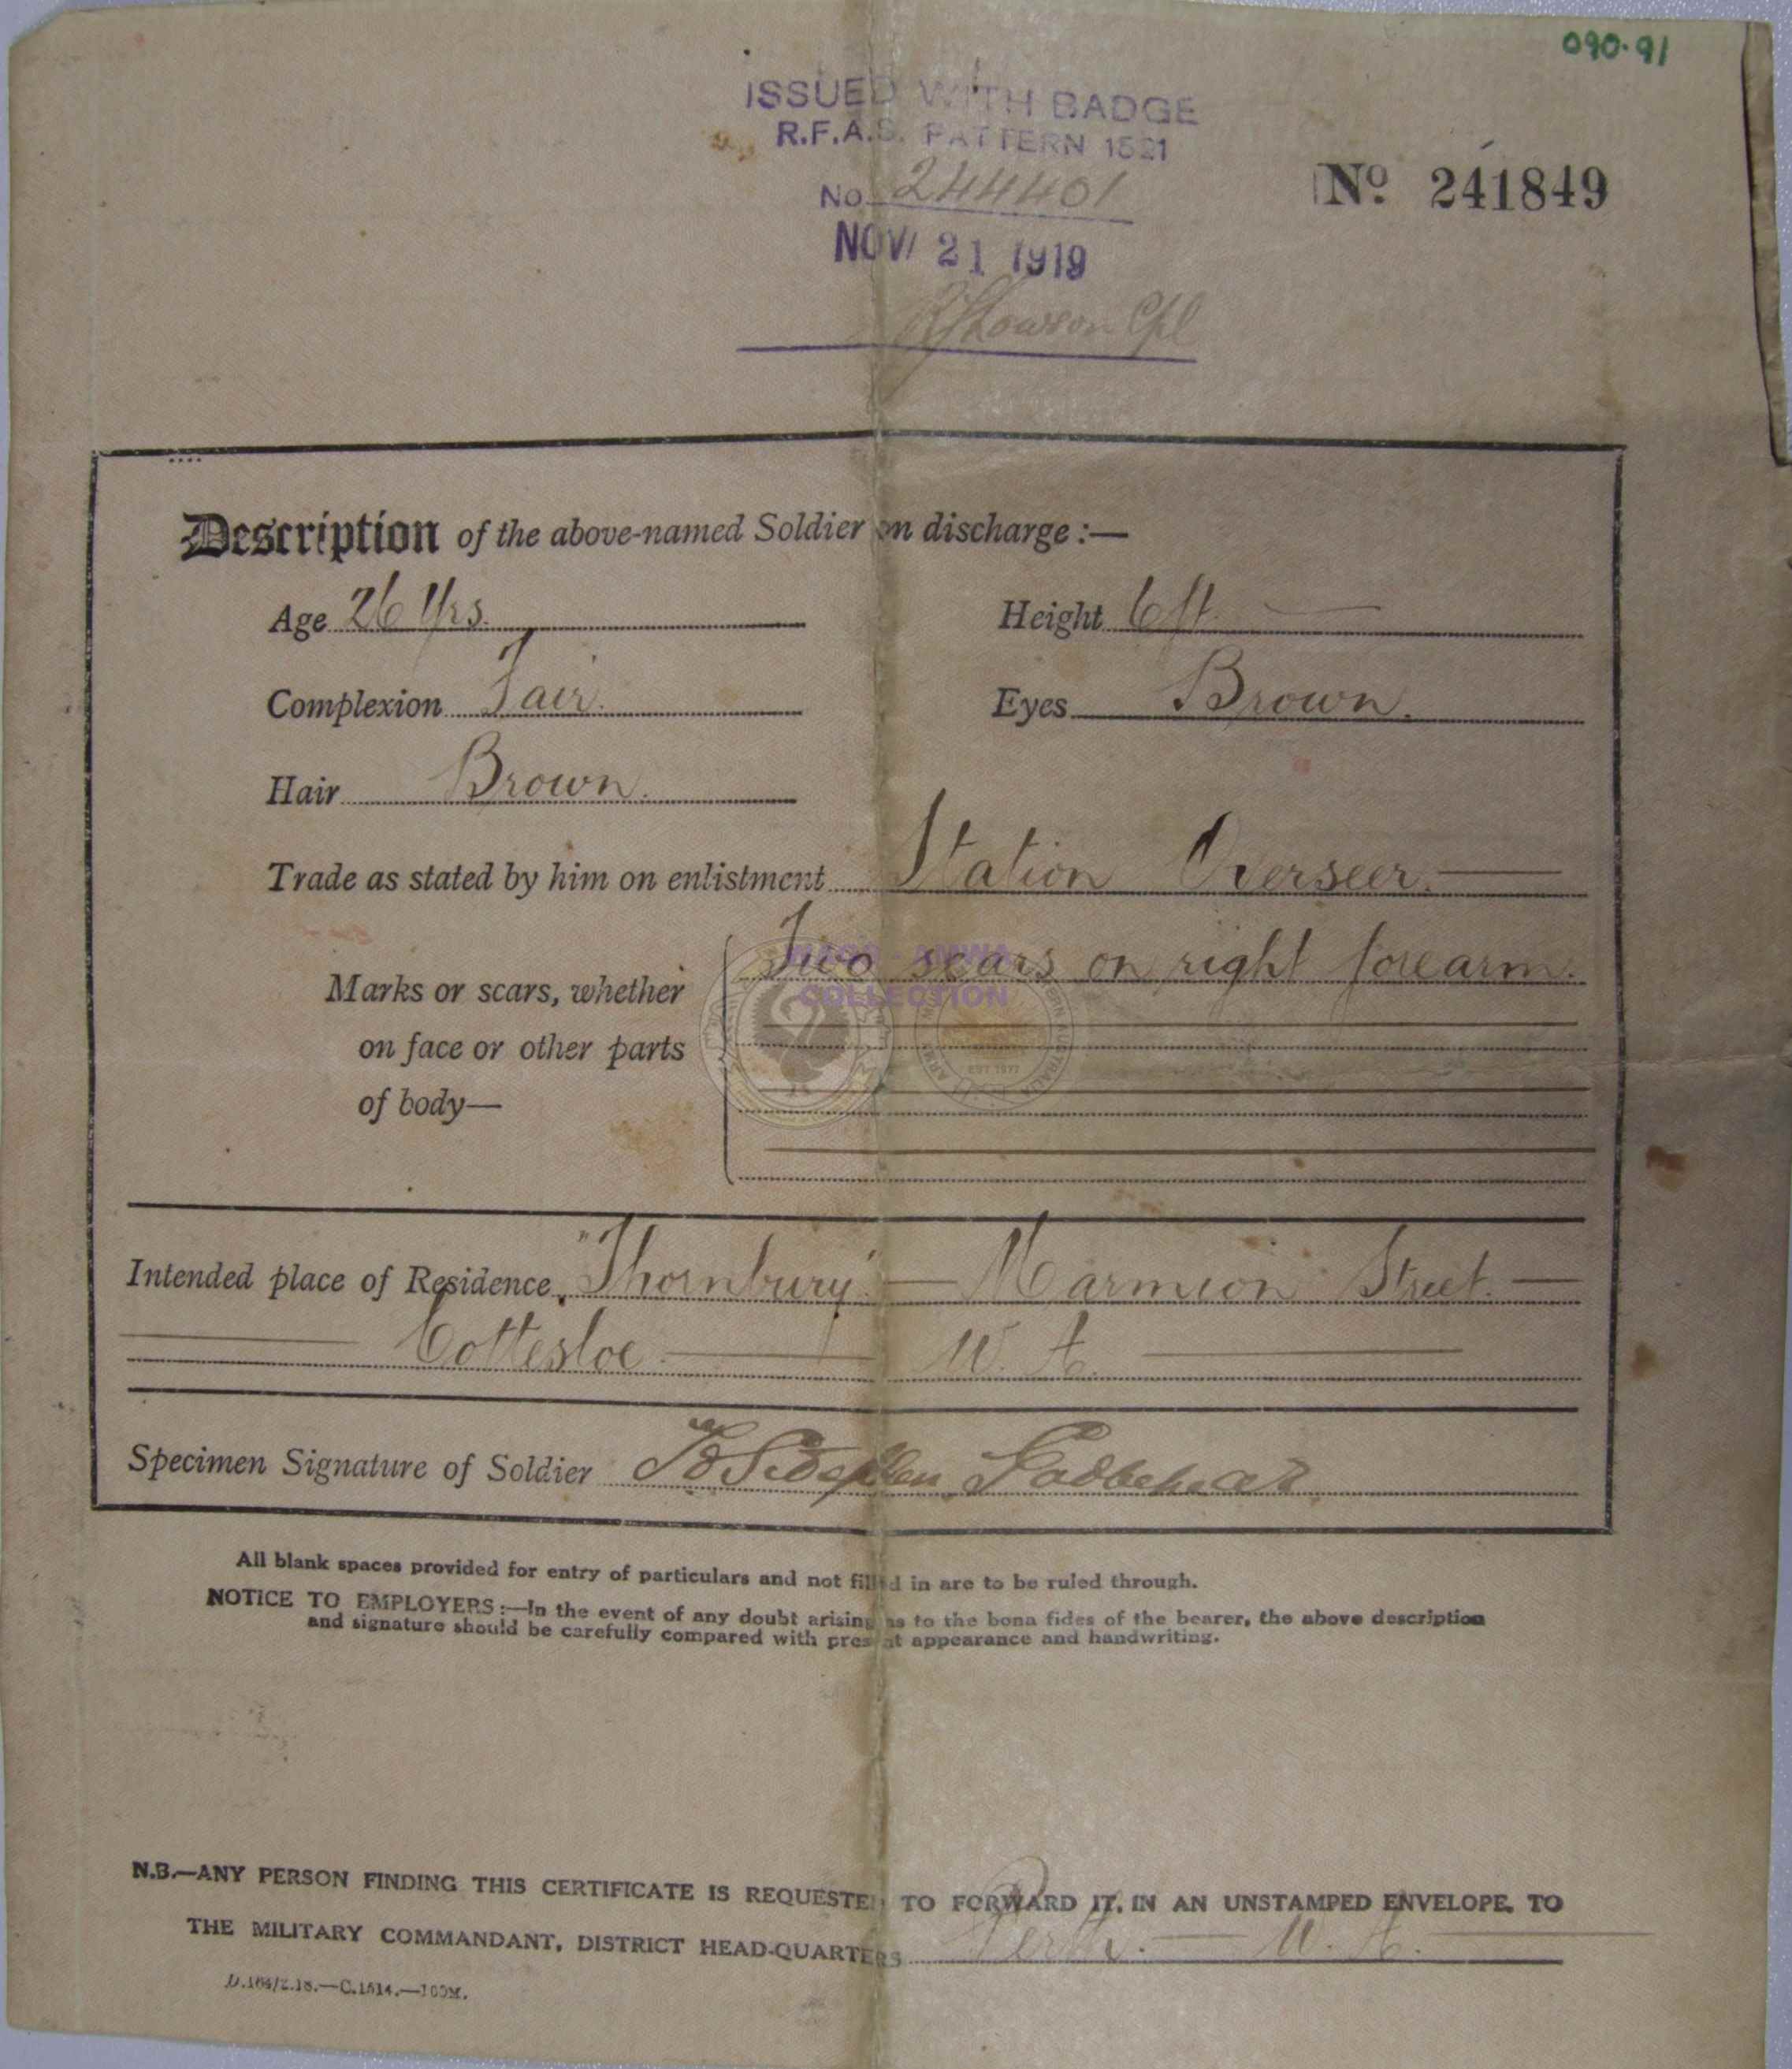 090.91
ISSUED WITH BADGE
R.F.A.S. PATTERN 1521
No 244401
Nº 241849
NOV 21 1919
Cpl
Description of the above-named Soldier on discharge :—
Age 26 Yrs.
Height 6 ft.
Complexion Fair.
Eyes Brown.
Hair Brown.
Trade as stated by him on enlistment Station Overseer.
Marks or scars, whether
on face or other parts
of body—
Two scars on right forearm.
COLLECTION
EST 1977
Intended place of Residence "Thornbury" — Marmion Street. —
Cottesloe — W. A.
Specimen Signature of Soldier Godbehear
All blank spaces provided for entry of particulars and not filled in are to be ruled through.
NOTICE TO EMPLOYERS :—In the event of any doubt arising as to the bona fides of the bearer, the above description
and signature should be carefully compared with present appearance and handwriting.
N.B.—ANY PERSON FINDING THIS CERTIFICATE IS REQUESTED TO FORWARD IT, IN AN UNSTAMPED ENVELOPE, TO
THE MILITARY COMMANDANT, DISTRICT HEAD-QUARTERS Perth. — W. A.